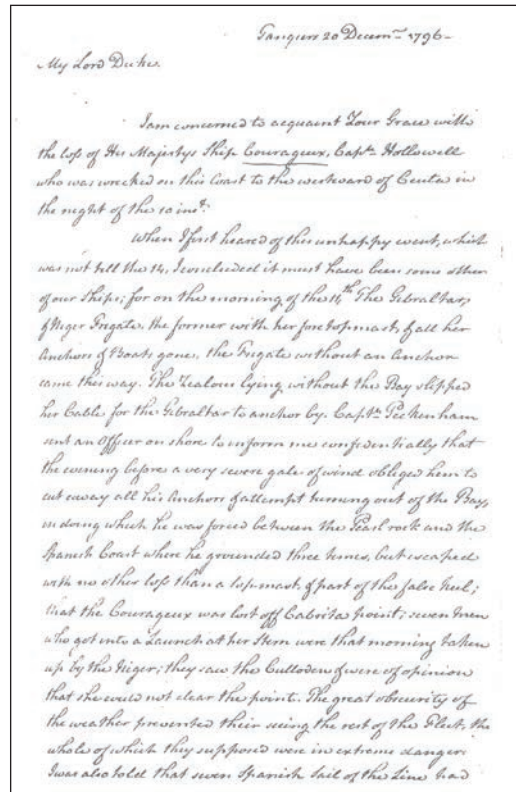 Tangiers 20 Decemr. 1796 -
My Lord Duke.
I am concerned to acquaint Your Grace with
the loss of His Majestys Ship Courageux, Captn. Hollowell
who was wrecked on this Coast to the westward of Ceuta in
the night of the 10 inst.
When I first heared of this unhappy event, which
was not till the 14, I concluded it must have been some other
of our Ships; for on the morning of the 11th The Gibraltar,
& Niger Frigate, the former with her foretopmast, & all her
Anchors & Boats gone, the Frigate without an Anchor
came this way. The Zealous lying without the Bay slipped
her Cable for the Gibraltar to anchor by. Captn. Peckenham
sent an Officer on shore to inform me confidentially that
the evening before a very severe gale of wind obliged him to
cut away all his Anchors & attempt turning out of the Bay,
in doing which he was forced between the Pearl rock and the
Spanish Coast where he grounded three times, but escaped
with no other loss than a topmast & part of the false keel;
that the Courageux was lost off Cabrita point; seven men
who got into a Launch at her Stern were that morning taken
up by the Niger; they saw the Culloden & were of opinion
that she could not clear the point. The great obscurity of
the weather prevented their seeing the rest of the Fleet, the
whole of which they supposed were in extreme danger.
I was also told that seven Spanish Sail of the Line had